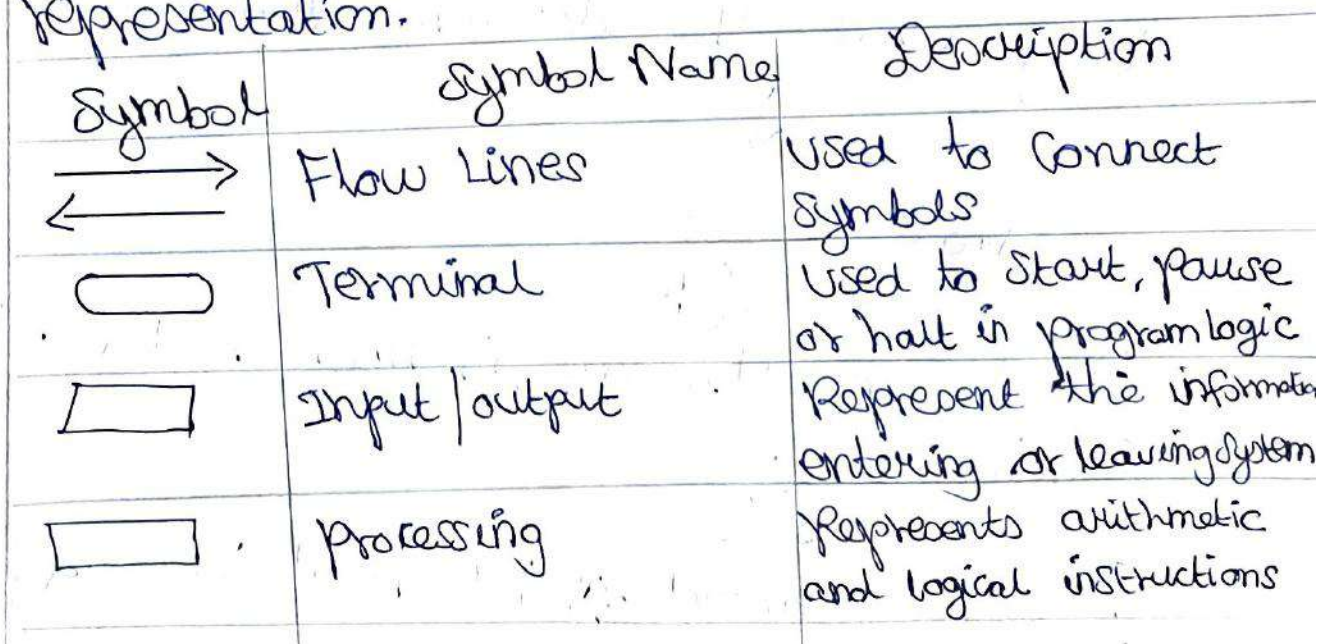 representation.
Symbol Symbol Name Description
Flow Lines Used to Connect
Symbols
Terminal Used to Start, pause
or halt in program logic
Input/output Represent the informatio
entering or leaving system
processing Represents arithmetic
and logical instructions